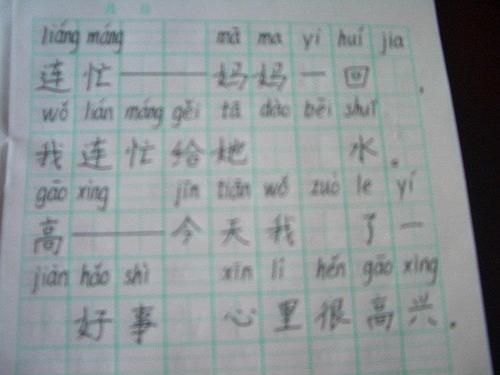 liáng máng mā ma yí huí jia
连忙——妈妈一回 .
wǒ lián máng gěi tā dào bēi shuǐ
我连忙给她 水。
gāo xìng jīn tiān wǒ zuò le yí
高——今天我 了一
jiàn hǎo shì xīn lǐ hěn gāo xìng
好事 心里很高兴.